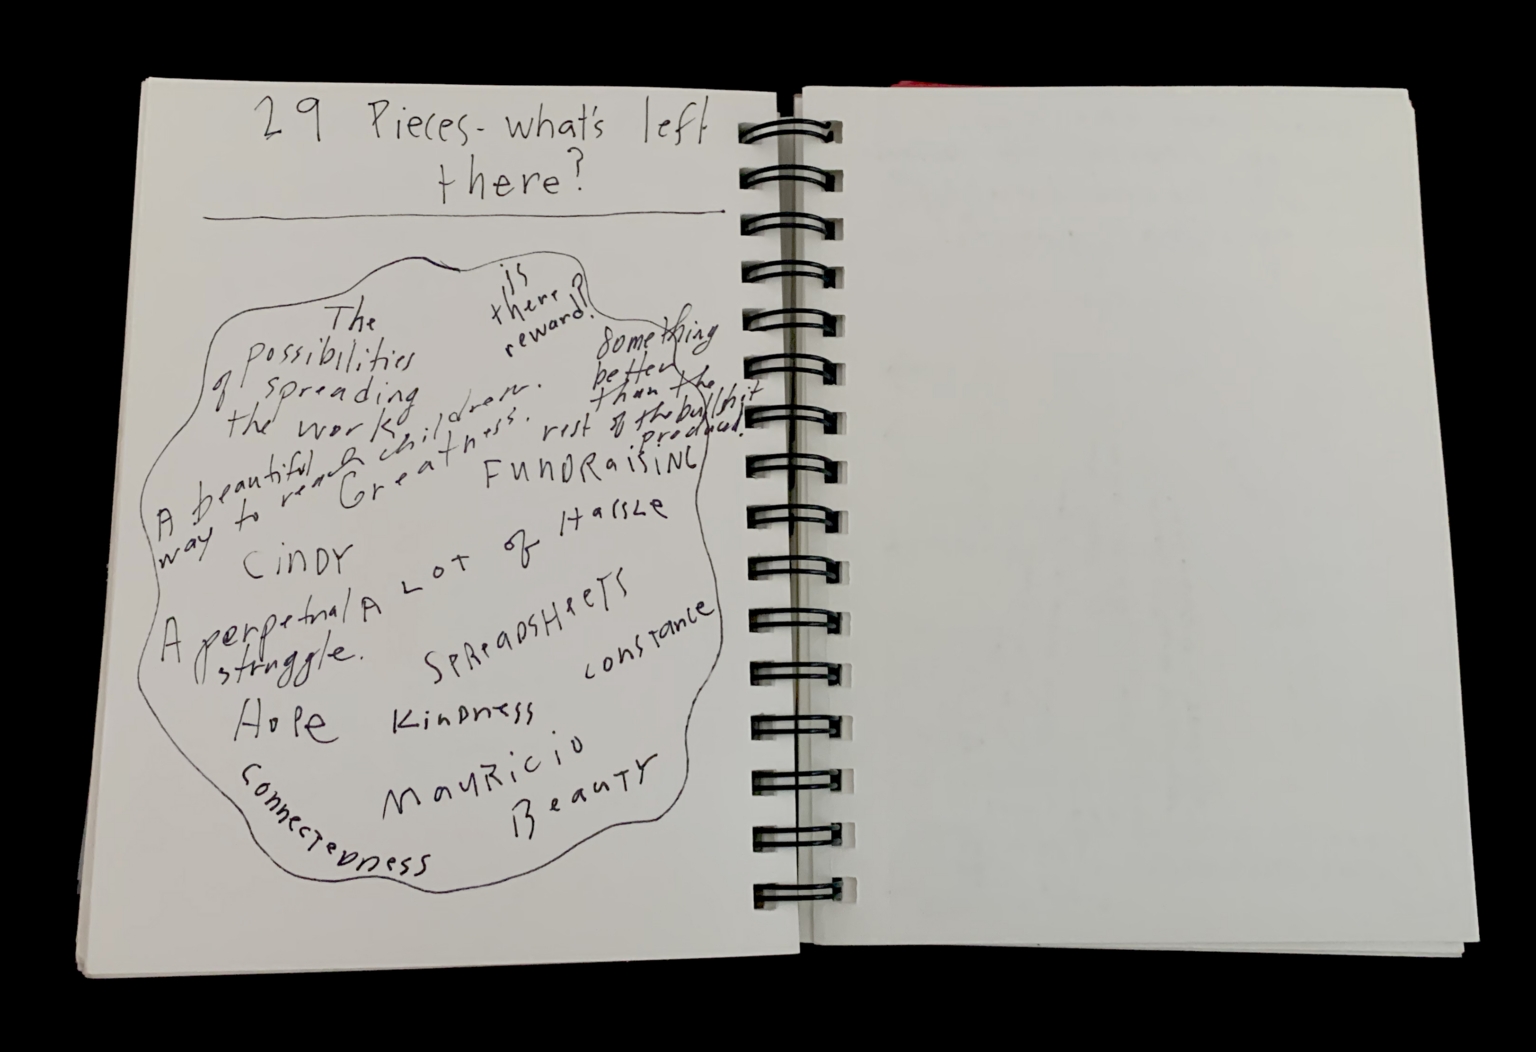 29 Pieces - what's left
there?
is
there
reward?
The
possibilities
of spreading
the work
Something
better
than the
rest of the bullshit
produced!
A beautiful
way to reach children.
Greatness.
FUNDRAISING
CINDY
A LOT of HASSLE
A perpetual
struggle.
SPREADSHEETS
CONSTANCE
HOPE
KINDNESS
MAURICIO
BEAUTY
CONNECTEDNESS